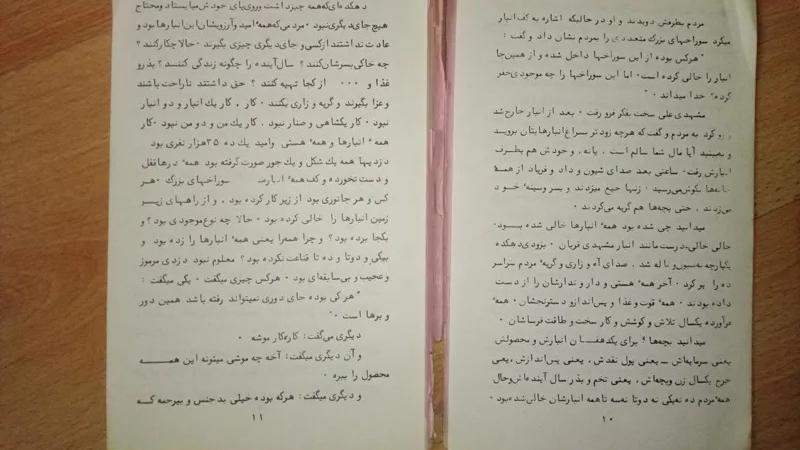 مردم بطرفش دویدند و او در حالیکه اشاره به کف انبار
میکرد سوراخهای بزرگ متعددی را بمردم نشان داد و گفت :
"هرکس بوده از این سوراخها داخل شده و از همین‌جا
انبار را خالی کرده است• اما این سوراخها را چه موجودی حفر
کرده؟ خدا میداند • "
مشهدی علی سخت بفکر فرو رفت • بعد از انبار خارج شد
کرد به مردم و گفت که هرچه زودتر بسراغ انبارهایتان بروید
و به‌بینید آیا مال شما سالم است ، یانه ، و خودش هم بطرف
انبارش رفت• ساعتی بعد صدای شیون و داد و فریاد از همهٔ
بگوش میرسید • زنها جیغ میزدند و بسر وسینه خود
میزدند . حتی بچه‌ها هم گریه می‌کردند •
میدانید چی شده بود همهٔ انبارها خالی شده بود•
خالی خالی، درست مانند انبار مشهدی قربان • بزودی دهکده
یکپارچه به شیون و ناله شد . صدای آه و زاری و گریهٔ مردم سراسر
ده را پر کرد • آخر همهٔ هستی و دار و ندارشان را از دست
داده بودند • همهٔ قوت و غذا و پس‌انداز و دسترنجشان • همهٔ
فرآورده یکسال تلاش و کوشش و کار سخت و طاقت فرساشان •
میدانید بچه‌ها ؛ برای یکدهقان انبارش و محصولش
یعنی سرمایه‌اش ــ یعنی پول نقدش ، یعنی پس‌اندازش ،یعنی
خرج یکسال زن وبچه‌اش ، یعنی تخم و بذر سال آینده‌اش وحال
همهٔ مردم ده نه‌یکی نه دوتا نه‌سه تا همه انبارشان خالی شده‌بود •
۱۰
دهکده‌ای که همه چیز داشت وروی‌پای خودش میایستاد ومحتاج
هیچ جای‌دیگری نبود • مردمی که همهٔ امید و آرزویشان این انبارها بود و
عادت نداشتند ازکسی و جای دیگری چیزی بگیرند • حالا چکارکنند ؟
چه خاکی بسرشان کنند ؟ سال آینده را چگونه زندگی کننسد ؟ بذر و
غذا و ••• از کجا تهیه کنند ؟ حق داشتند ناراحت باشند
و عزا بگیرند و گریه و زاری بکنند • کار ، کار یك انبار و دو انبار
نبود • کار یکشاهی و صنار نبود . کار یك من و دو من نبود •کار
همهٔ انبارها و همهٔ هستی وامید یك ده ۲۵هزار نفری بود
دزدیها همه یك شکل و یك جور صورت گرفته بود همهٔ درها قفل
و دست نخورده و کف همهٔ سوراخهای بزرگ •هر
کس و هر جانوری بود از زیر کار کرده بود . و از راههای زیر
زمین انبارها را خالی کرده بود • حالا چه نوع موجودی بود؟ و
بکجا برده بود؟ و چرا همه‌را یعنی همهٔ انبارها را زده بود و
بیکی و دوتا و ده تا قناعت نکرده بود؟ معلوم نبود دزدی مرموز
وعجیب و بی‌سابقه‌ای بود • هرکس چیزی میگفت • یکی میگفت :
"هرکی بوده جای دوری نمیتواند رفته باشد همین دور
و برها است • "
دیگری می‌گفت: کاره‌کار موشه •
و آن دیگری میگفت: آخه چه موشی میتونه این همه
محصول را ببره •
و دیگری میگفت: هرکه بوده خیلی بدجنس و بیرحمه که
۱۱